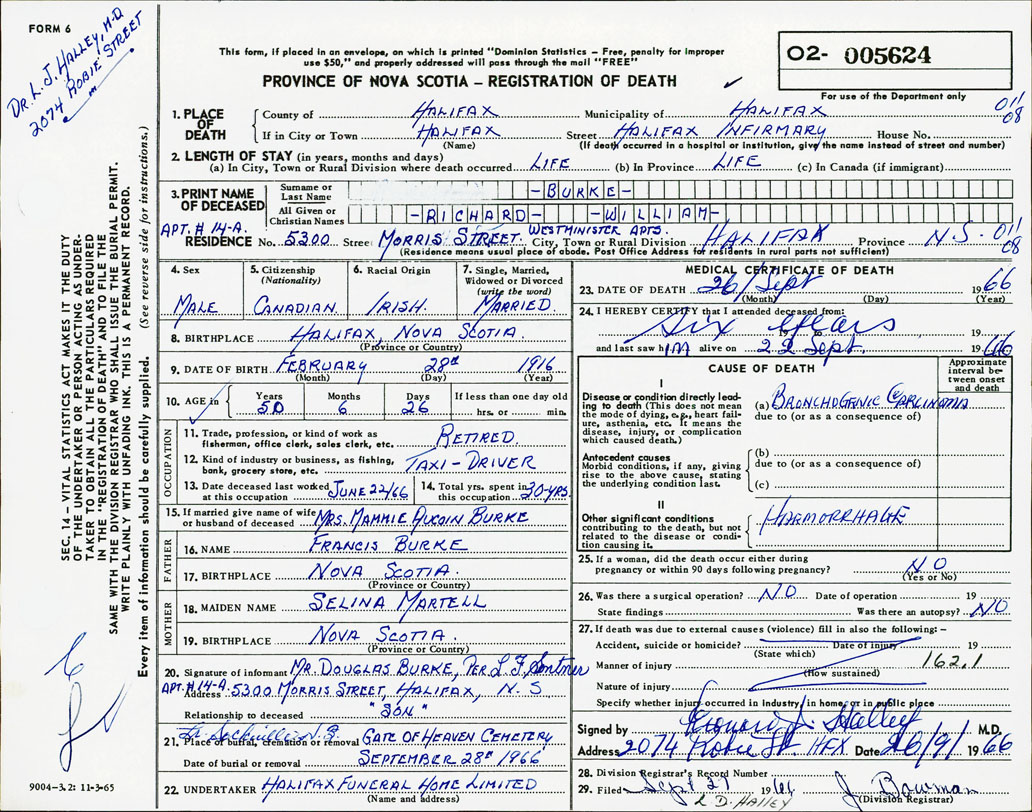 FORM 6
DR. L. J. HALLEY, M.D.
2074 ROBIE STREET
This form, if placed in an envelope, on which is printed "Dominion Statistics – Free, penalty for improper
use $50," and properly addressed will pass through the mail "FREE"
PROVINCE OF NOVA SCOTIA – REGISTRATION OF DEATH
02- 005624
For use of the Department only
1. PLACE OF DEATH
County of HALIFAX Municipality of HALIFAX 011 08
If in City or Town HALIFAX Street HALIFAX INFIRMARY House No.
(Name) (If death occurred in a hospital or institution, give the name instead of street and number)
2. LENGTH OF STAY (in years, months and days)
(a) In City, Town or Rural Division where death occurred LIFE (b) In Province LIFE (c) In Canada (if immigrant)
3. PRINT NAME OF DECEASED
Surname or Last Name -BURKE-
All Given or Christian Names -RICHARD- -WILLIAM-
APT. # 14-A. WESTMINISTER APTS.
RESIDENCE No. 5300 Street MORRIS STREET. City, Town or Rural Division HALIFAX Province N.S. 011 08
(Residence means usual place of abode. Post Office Address for residents in rural parts not sufficient)
SEC. 14 – VITAL STATISTICS ACT MAKES IT THE DUTY
OF THE UNDERTAKER OR PERSON ACTING AS UNDER-
TAKER TO OBTAIN ALL THE PARTICULARS REQUIRED
IN THE "REGISTRATION OF DEATH" AND TO FILE THE
SAME WITH THE DIVISION REGISTRAR WHO SHALL ISSUE THE BURIAL PERMIT.
WRITE PLAINLY WITH UNFADING INK. THIS IS A PERMANENT RECORD.
Every item of information should be carefully supplied. (See reverse side for instructions.)
4. Sex
MALE
5. Citizenship
(Nationality)
CANADIAN
6. Racial Origin
IRISH.
7. Single, Married,
Widowed or Divorced
(write the word)
MARRIED.
8. BIRTHPLACE HALIFAX, NOVA SCOTIA
(Province or Country)
9. DATE OF BIRTH FEBRUARY 28th 1916
(Month) (Day) (Year)
10. AGE in Years 50 Months 6 Days 26 If less than one day old
hrs. or min.
OCCUPATION
11. Trade, profession, or kind of work as
fisherman, office clerk, sales clerk, etc. RETIRED.
12. Kind of industry or business, as fishing,
bank, grocery store, etc. TAXI-DRIVER
13. Date deceased last worked
at this occupation JUNE 22/66
14. Total yrs. spent in
this occupation 30-YRS.
15. If married give name of wife
or husband of deceased MRS. MAMMIE AUCOIN BURKE
FATHER
16. NAME FRANCIS BURKE
17. BIRTHPLACE NOVA SCOTIA.
(Province or Country)
MOTHER
18. MAIDEN NAME SELINA MARTELL
19. BIRTHPLACE NOVA SCOTIA.
(Province or Country)
20. Signature of informant MR. DOUGLAS BURKE, PER L. F.
APT. # 14-A.
Address 5300 MORRIS STREET, HALIFAX, N. S
Relationship to deceased "SON"
21. Place of burial, cremation or removal GATE OF HEAVEN CEMETERY
Date of burial or removal SEPTEMBER 28th 1966
22. UNDERTAKER HALIFAX FUNERAL HOME LIMITED
(Name and address)
9004–3.2: 11-3-65
MEDICAL CERTIFICATE OF DEATH
23. DATE OF DEATH 26/Sept 1966
(Month) (Day) (Year)
24. I HEREBY CERTIFY that I attended deceased from:
Six Years
and last saw him alive on 22 Sept. 1966
CAUSE OF DEATH
Approximate
interval be-
tween onset
and death
I
Disease or condition directly lead-
ing to death (This does not mean
the mode of dying, e.g., heart fail-
ure, asthenia, etc. It means the
disease, injury, or complication
which caused death.)
(a) BRONCHOGENIC CARCINOMA
due to (or as a consequence of)
Antecedent causes
Morbid conditions, if any, giving
rise to the above cause, stating
the underlying condition last.
(b)
due to (or as a consequence of)
(c)
II
Other significant conditions
contributing to the death, but not
related to the disease or condi-
tion causing it.
HAEMORRHAGE
25. If a woman, did the death occur either during
pregnancy or within 90 days following pregnancy? NO
(Yes or No)
26. Was there a surgical operation? NO Date of operation 19
State findings Was there an autopsy? NO
27. If death was due to external causes (violence) fill in also the following:–
Accident, suicide or homicide? Date of injury 19
(State which)
Manner of injury 162.1
(How sustained)
Nature of injury
Specify whether injury occurred in industry, in home, or in public place
Signed by Leonard J. Halley M.D.
Address 2074 Robie St. HFX Date 26/9/ 1966
28. Division Registrar's Record Number
29. Filed Sept 27 1966 J. Bowman
(Division Registrar)
L D. HALLEY